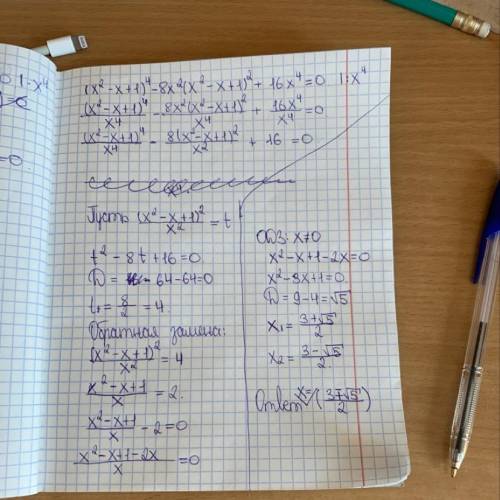 0 |: x⁴
) = 0
= 0.
(x²-x+1)⁴ - 8x²(x²-x+1)² + 16x⁴ = 0 |: x⁴
(x²-x+1)⁴/x⁴ - 8x²(x²-x+1)²/x⁴ + 16x⁴/x⁴ = 0
(x²-x+1)⁴/x⁴ - 8(x²-x+1)²/x² + 16 = 0
Пусть (x²-x+1)²/x² = t
t² - 8t + 16 = 0
D = 64-64=0
t₁ = 8/2 = 4.
Обратная замена:
(x²-x+1)²/x² = 4
x²-x+1/x = 2.
x²-x+1/x - 2 = 0
x²-x+1-2x/x = 0
ОДЗ: x≠0
x²-x+1-2x=0
x²-3x+1=0
D = 9-4=√5
x₁ = 3+√5/2
x₂ = 3-√5/2
Ответ x= (3±√5/2)